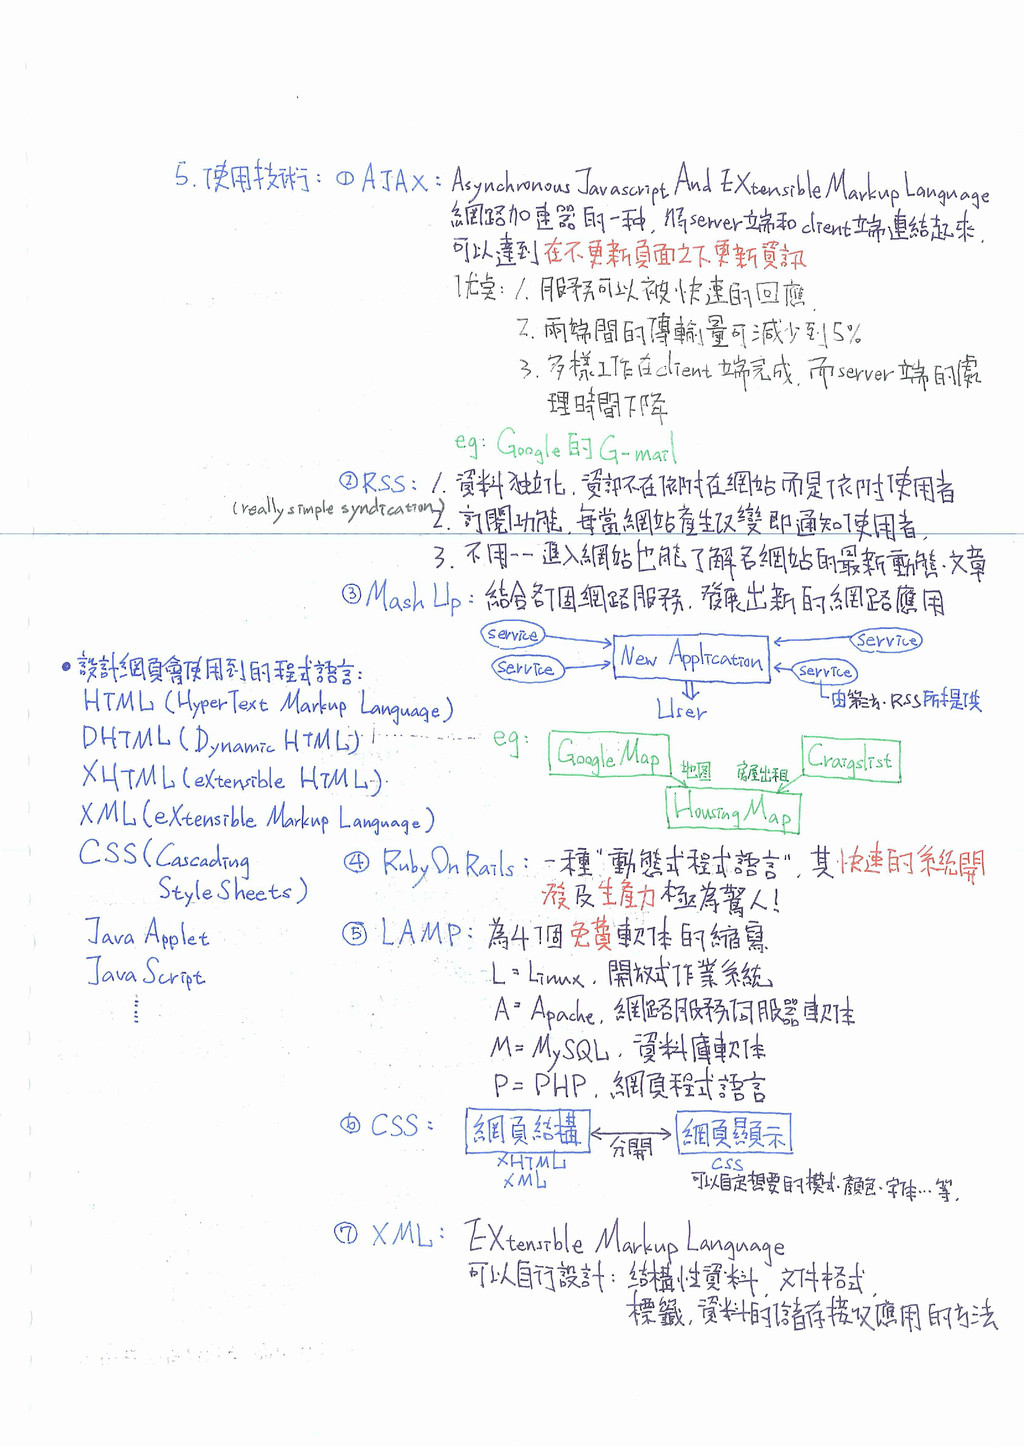 5.使用技術：① AJAX：Asynchronous Javascript And EXtensible Markup Language
網路加速器的一種，將server端和client端連結起來，
可以達到在不更新頁面之下更新資訊
優点：1. 服務可以被快速的回應．
2. 兩端間的傳輸量可減少到5%
3. 多樣工作在client端完成，而server端的處
理時間下降
eg: Google的G-mail
②RSS：1. 資料独立化，資訊不在依附在網站而是依附使用者
(really simple syndication)
2. 訂閱功能，每當網站產生改變即通知使用者，
3. 不用一一進入網站也能了解各網站的最新動態·文章
③Mash Up：結合各個網路服務，發展出新的網路應用
service
service
New Application
service
service
User
由第三方·RSS所提供
eg:
Google Map
地圖
房屋出租
Craigslist
HousingMap
④ Ruby On Rails：一種"動態式程式語言"，其快速的系統開
發及生產力極為驚人！
⑤ LAMP：為4個免費軟体的縮寫
L=Linux，開放式作業系統
A=Apache，網路服務伺服器軟体
M=MySQL，資料庫軟体
P=PHP，網頁程式語言
⑥ CSS：
網頁結構
分開
網頁顯示
XHTML
XML
CSS
可以自定想要的模式·顏色·字体…等．
⑦ XML：EXtensible Markup Language
可以自行設計：結構性資料，文件格式，
標籤，資料的儲存接收應用的方法
• 設計網頁會使用到的程式語言：
HTML (HyperText Markup Language)
DHTML (Dynamic HTML)
XHTML (eXtensible HTML)
XML (eXtensible Markup Language)
CSS (Cascading
Style Sheets)
Java Applet
Java Script